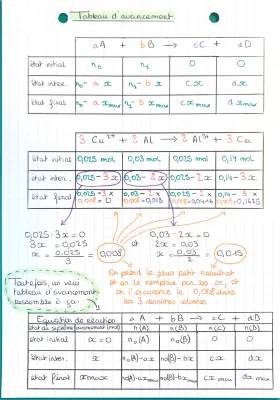 Tableau d'avancement
aA + bB → cC + dD
état initial n₀ n₁ 0 0
état inter. n₀-a x n₁-b x cx dx
état final n₀-a xmax n₁-b xmax cxmax dxmax
3 Cu²⁺ + 2 Al → 2 Al³⁺ + 3 Cu
état initial 0,025 mol 0,03 mol 0,025 mol 0,14 mol
état inter. 0,025-3x 0,03-2x 0,025-2x 0,14-3x
état final
0,025-3x=0 et 0,03-2x=0
3x=0,025 2x=0,03
x = 0,025/3 = 0,008 x = 0,03/2 = 0,015
On prend le plus petit résultat
et on le remplace par les x, et
en l'occurence le 0,008 dans
les 3 dernières colonnes.
Toutefois, un vrai
tableau d'avancement
ressemble à ça:
Equation de réaction aA + bB → cC + dD
état du système avancement (mol) n(A) n(B) n(C) n(D)
état initial x=0 n₀(A) n₀(B) 0 0
état inter. x n₀(A)-ax n₀(B)-bx cx dx
état final xmax n₀(A)-axmax n₀(B)-bxmax cxmax dxmax